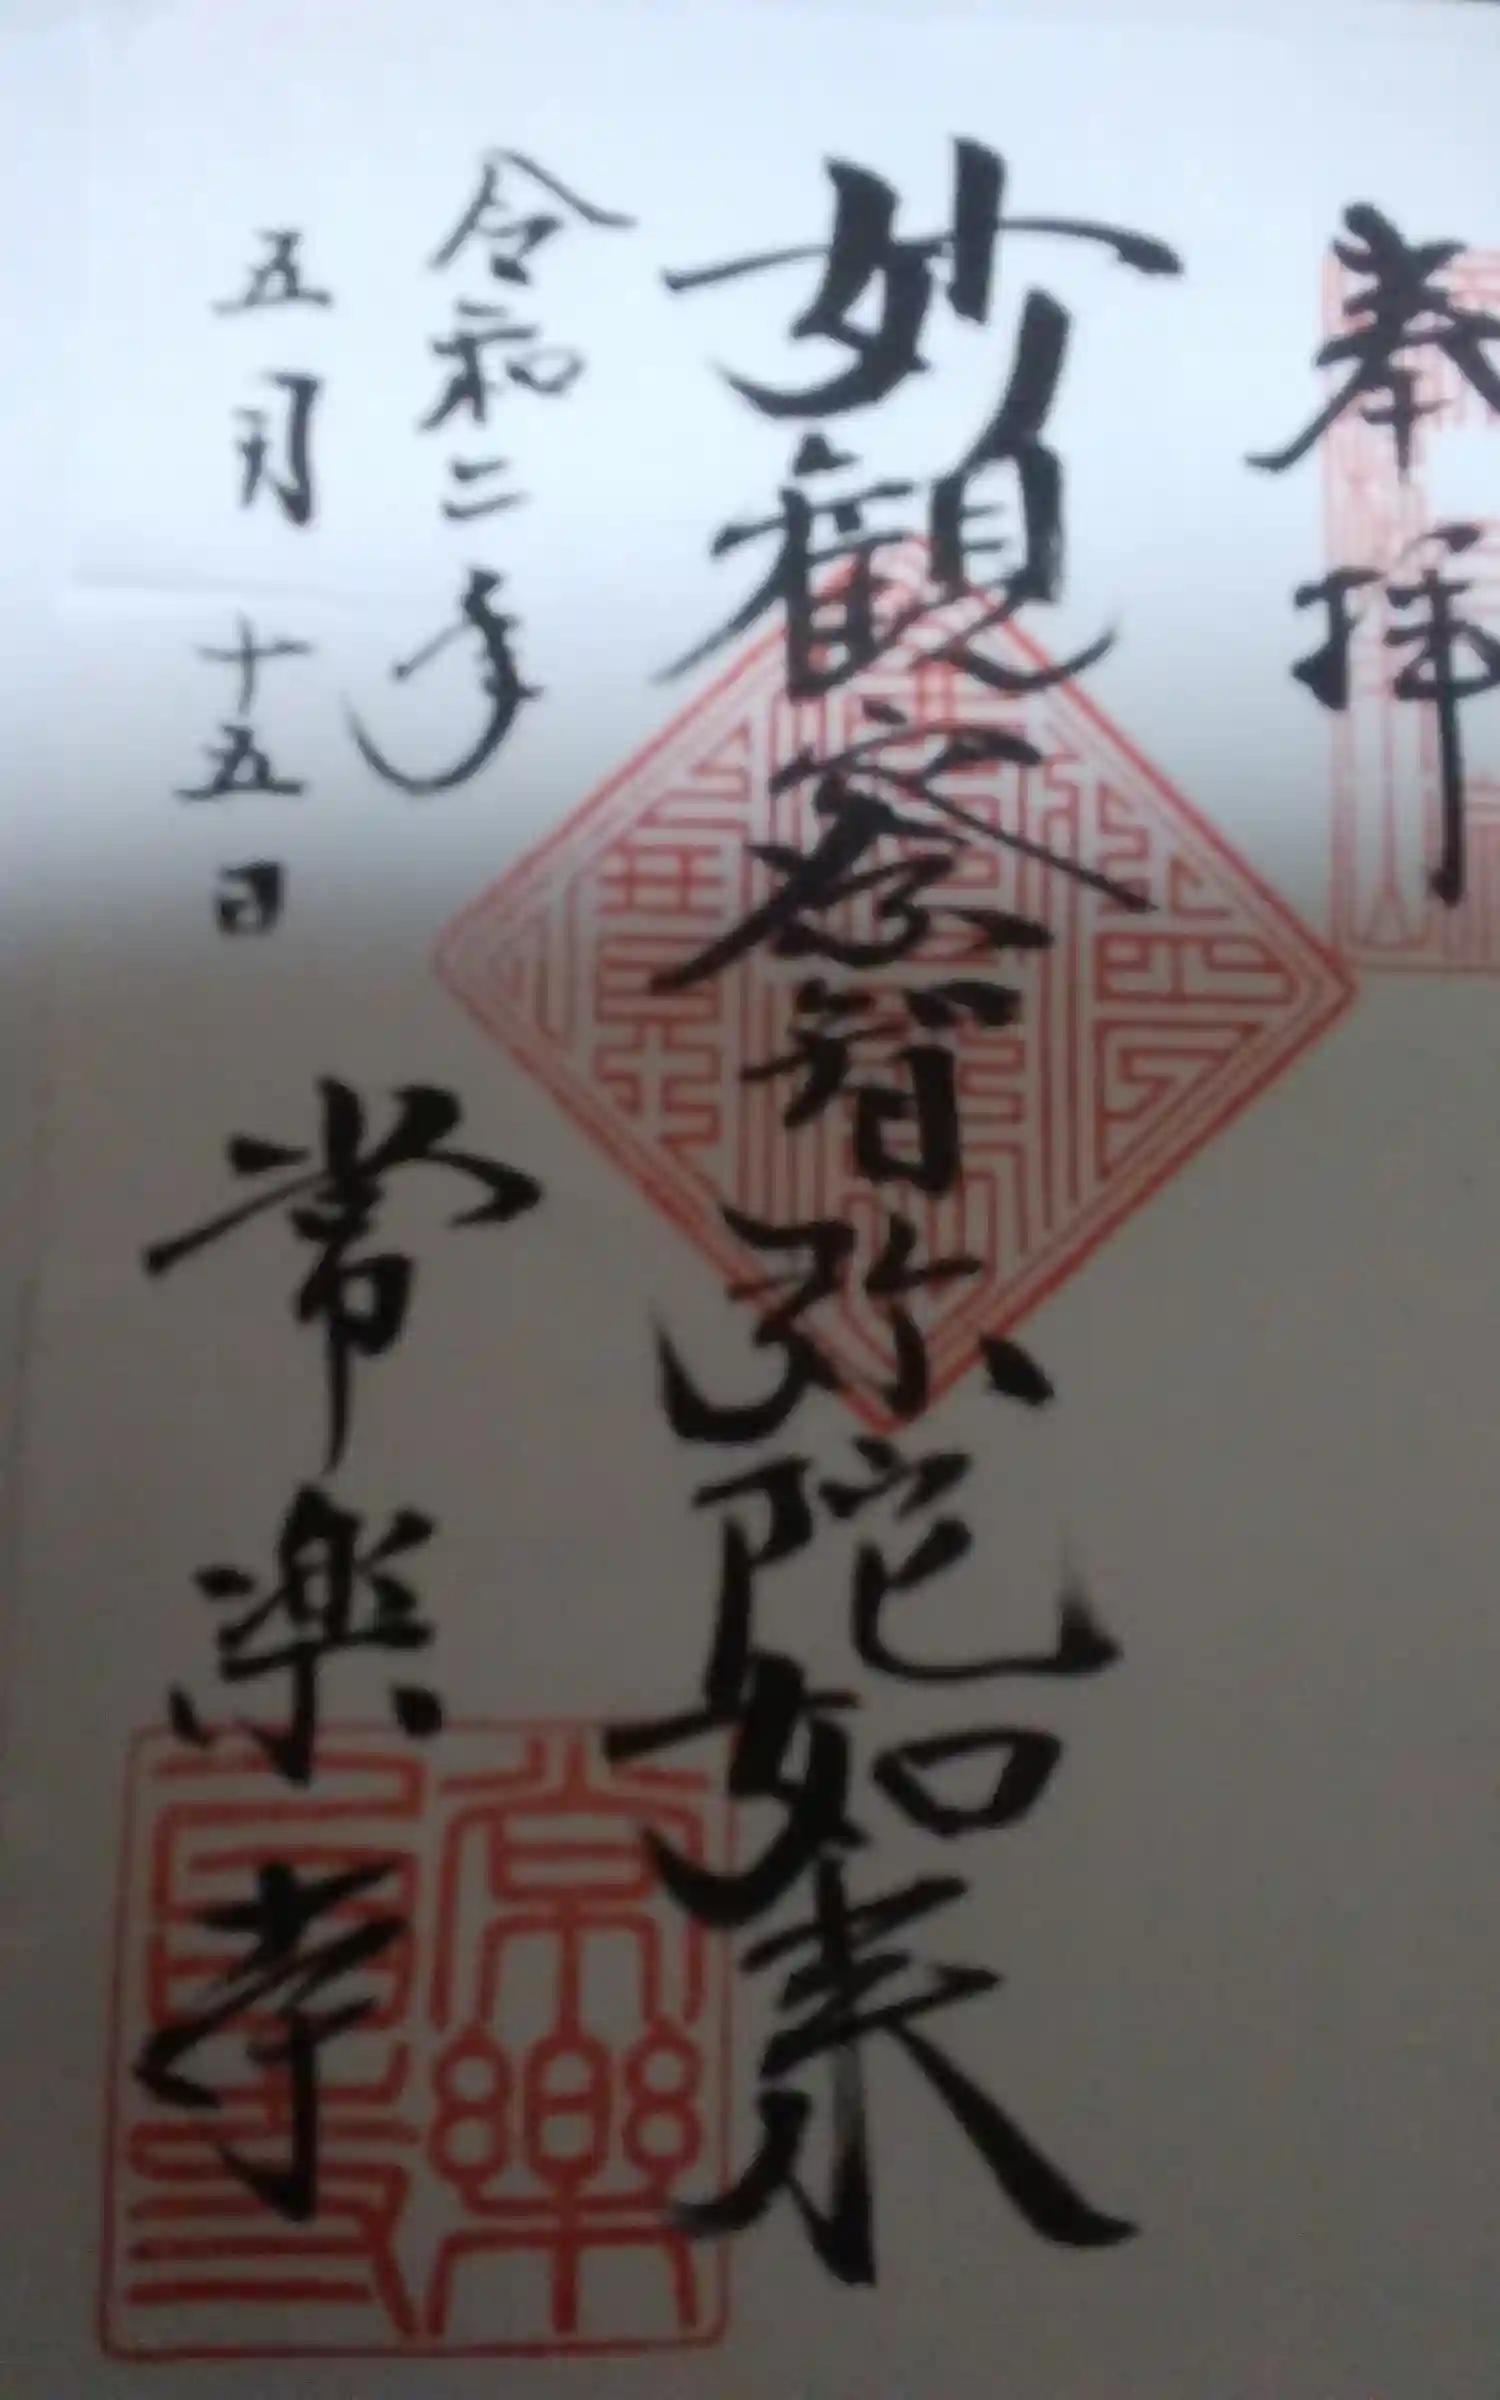 奉拝
妙観察智弥陀如来
令和二年
五月十五日
常楽寺